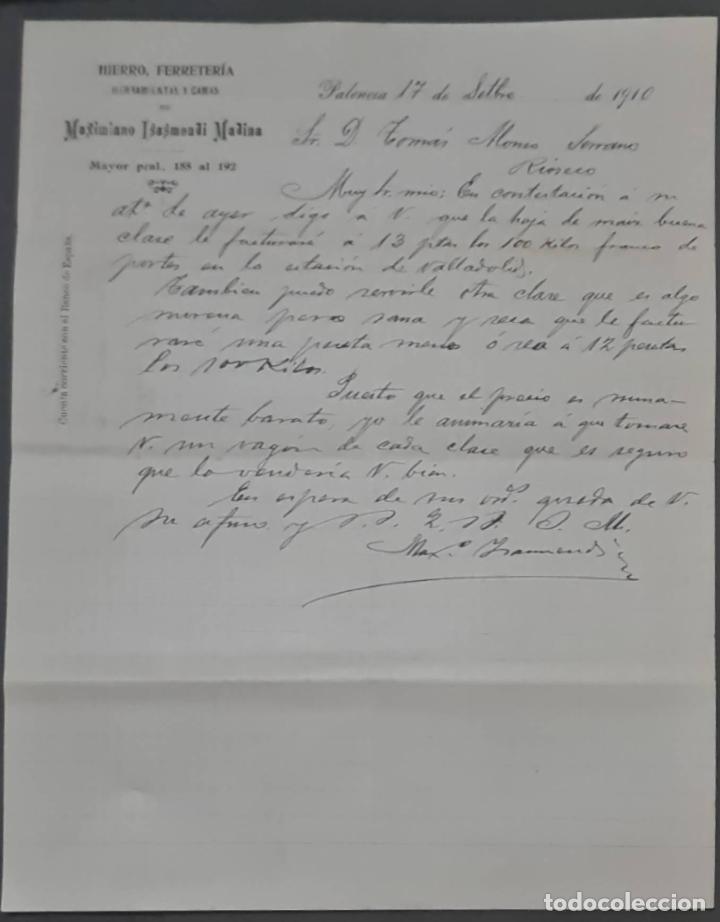 HIERRO, FERRETERÍA
HERRAMIENTAS Y CAMAS
DE
Maximiano Isasmendi Medina
Mayor pral, 188 al 192
Cuenta corriente con el Banco de España.
Palencia 17 de Setbre de 1910
Sr. D. Tomás Alonso Serrano
Rioseco
Muy Sr. mio: En contestación á su
atª de ayer, digo á V. que la hoja de maiz buena
clase le facturaré á 13 ptas los 100 Kilos franco de
portes en la estación de Valladolid.
Tambien puedo servirle otra clase que es algo
morena pero sana y seca que le factu-
raré una peseta menos o sea á 12 pesetas
los 100 Kilos.
Puesto que el precio es suma-
mente barato, yo le animaría á que tomase
V. un vagón de cada clase que es seguro
que lo vendería V. bien.
En espera de sus ords. queda de V.
su afmo. y S. S. Q. B. S. M.
Max.º Isasmendi
todocoleccion.net